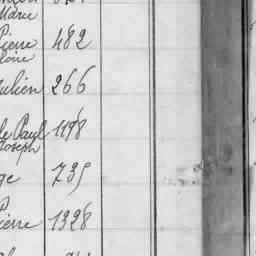 Marie
Pierre 482
ulien 266
le Paul 1198
Joseph
ge 735
ierre 1328